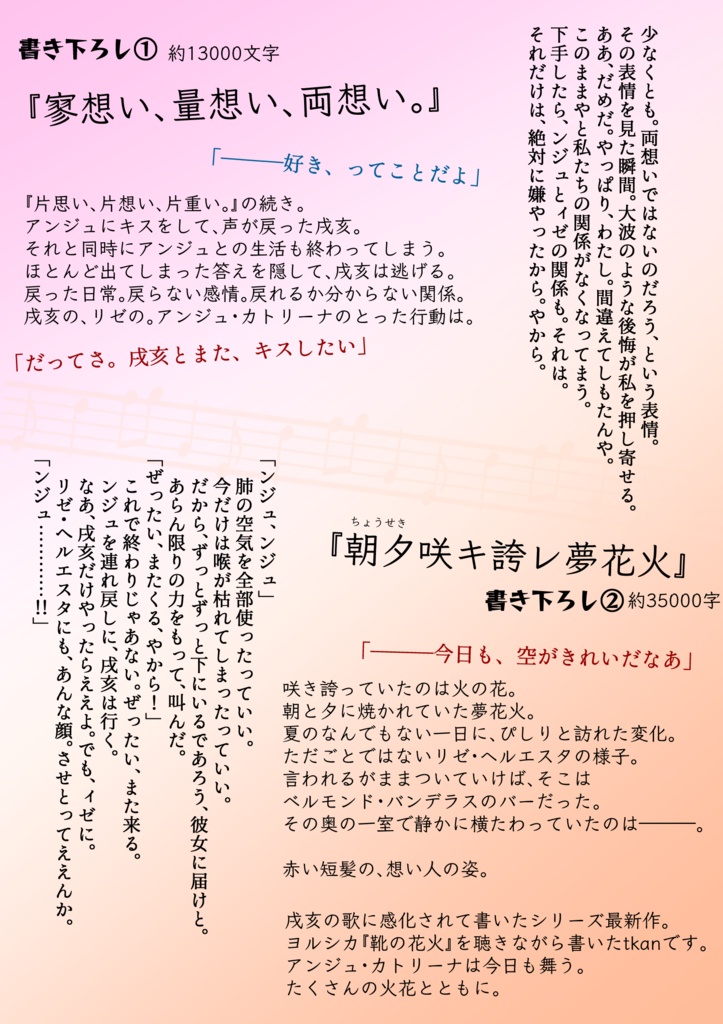 書き下ろし① 約13000文字
『寥想い、量想い、両想い。』
「―――好き、ってことだよ」
『片思い、片想い、片重い。』の続き。
アンジュにキスをして、声が戻った戌亥。
それと同時にアンジュとの生活も終わってしまう。
ほとんど出てしまった答えを隠して、戌亥は逃げる。
戻った日常。戻らない感情。戻れるか分からない関係。
戌亥の、リゼの。アンジュ・カトリーナのとった行動は。
「だってさ。戌亥とまた、キスしたい」
少なくとも。両想いではないのだろう、という表情。
その表情を見た瞬間。大波のような後悔が私を押し寄せる。
ああ、だめだ。やっぱり、わたし。間違えてしもたんや。
このままやと私たちの関係がなくなってまう。
下手したら、ンジュとィゼの関係も。それは。
それだけは、絶対に嫌やったから。やから。
ちょうせき
『朝夕咲キ誇レ夢花火』
書き下ろし② 約35000字
「―――今日も、空がきれいだなあ」
咲き誇っていたのは火の花。
朝と夕に焼かれていた夢花火。
夏のなんでもない一日に、ぴしりと訪れた変化。
ただごとではないリゼ・ヘルエスタの様子。
言われるがままついていけば、そこは
ベルモンド・バンデラスのバーだった。
その奥の一室で静かに横たわっていたのは―――。
赤い短髪の、想い人の姿。
戌亥の歌に感化されて書いたシリーズ最新作。
ヨルシカ『靴の花火』を聴きながら書いたtkanです。
アンジュ・カトリーナは今日も舞う。
たくさんの火花とともに。
「ンジュ、ンジュ」
肺の空気を全部使ったっていい。
今だけは喉が枯れてしまったっていい。
だから、ずっとずっと下にいるであろう、彼女に届けと。
あらん限りの力をもって、叫んだ。
「ぜったい、またくる、やから！」
これで終わりじゃあない。ぜったい、また来る。
ンジュを連れ戻しに、戌亥は行く。
なあ、戌亥だけやったらええよ。でも、ィゼに。
リゼ・ヘルエスタにも、あんな顔。させとってええんか。
「ンジュ…………!!」